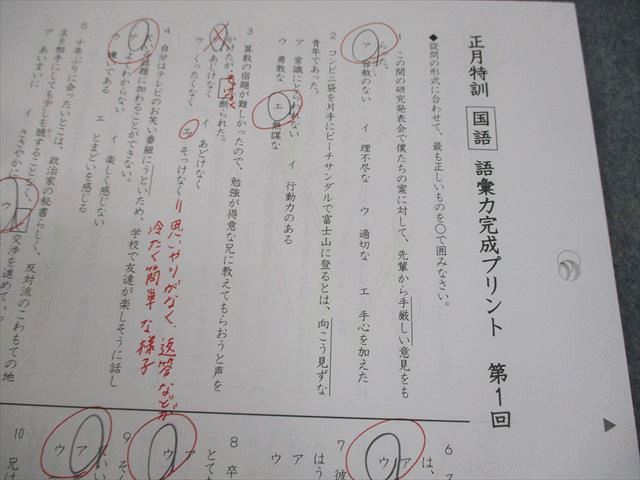 正月特訓 国語 語彙力完成プリント 第1回
◆設問の形式に合わせて、最も正しいものを○で囲みなさい。
1 この間の研究発表会で僕たちの案に対して、先輩から手厳しい意見をも
らった。
ア 容赦のない イ 理不尽な ウ 適切な エ 手心を加えた
2 コンビニ袋を片手にビーチサンダルで富士山に登るとは、向こう見ずな
青年であった。
ア 常識にとらわれない イ 行動力のある
ウ 勇敢な エ 無謀な
3 算数の宿題が難しかったので、勉強が得意な兄に教えてもらおうと声を
かけたが、 断られた。
ア あっけなく イ あどけなく
ウ くったくなく エ そっけなく
=思いやりがなく、返答などが
冷たく簡単な様子
4 自分はテレビのお笑い番組にうといため、学校で友達が楽しそうに話し
話題に加わることができない。
ア よくわからない イ 楽しく感じない
ウ 嫌いである エ とまどいを感じる
5 十年ぶりに会ったいとこは、政治家の秘書らしく、反対派のこわもての地
主を相手にしても少しも臆することなく、
交渉を進めて
ア あいまいに イ ささやかに ウ
6
は、
ア
ウ
7 彼
はう
ア
ウ
8 卒
とて
ア
ウ
9 そ
ア
ウ
10 兄は